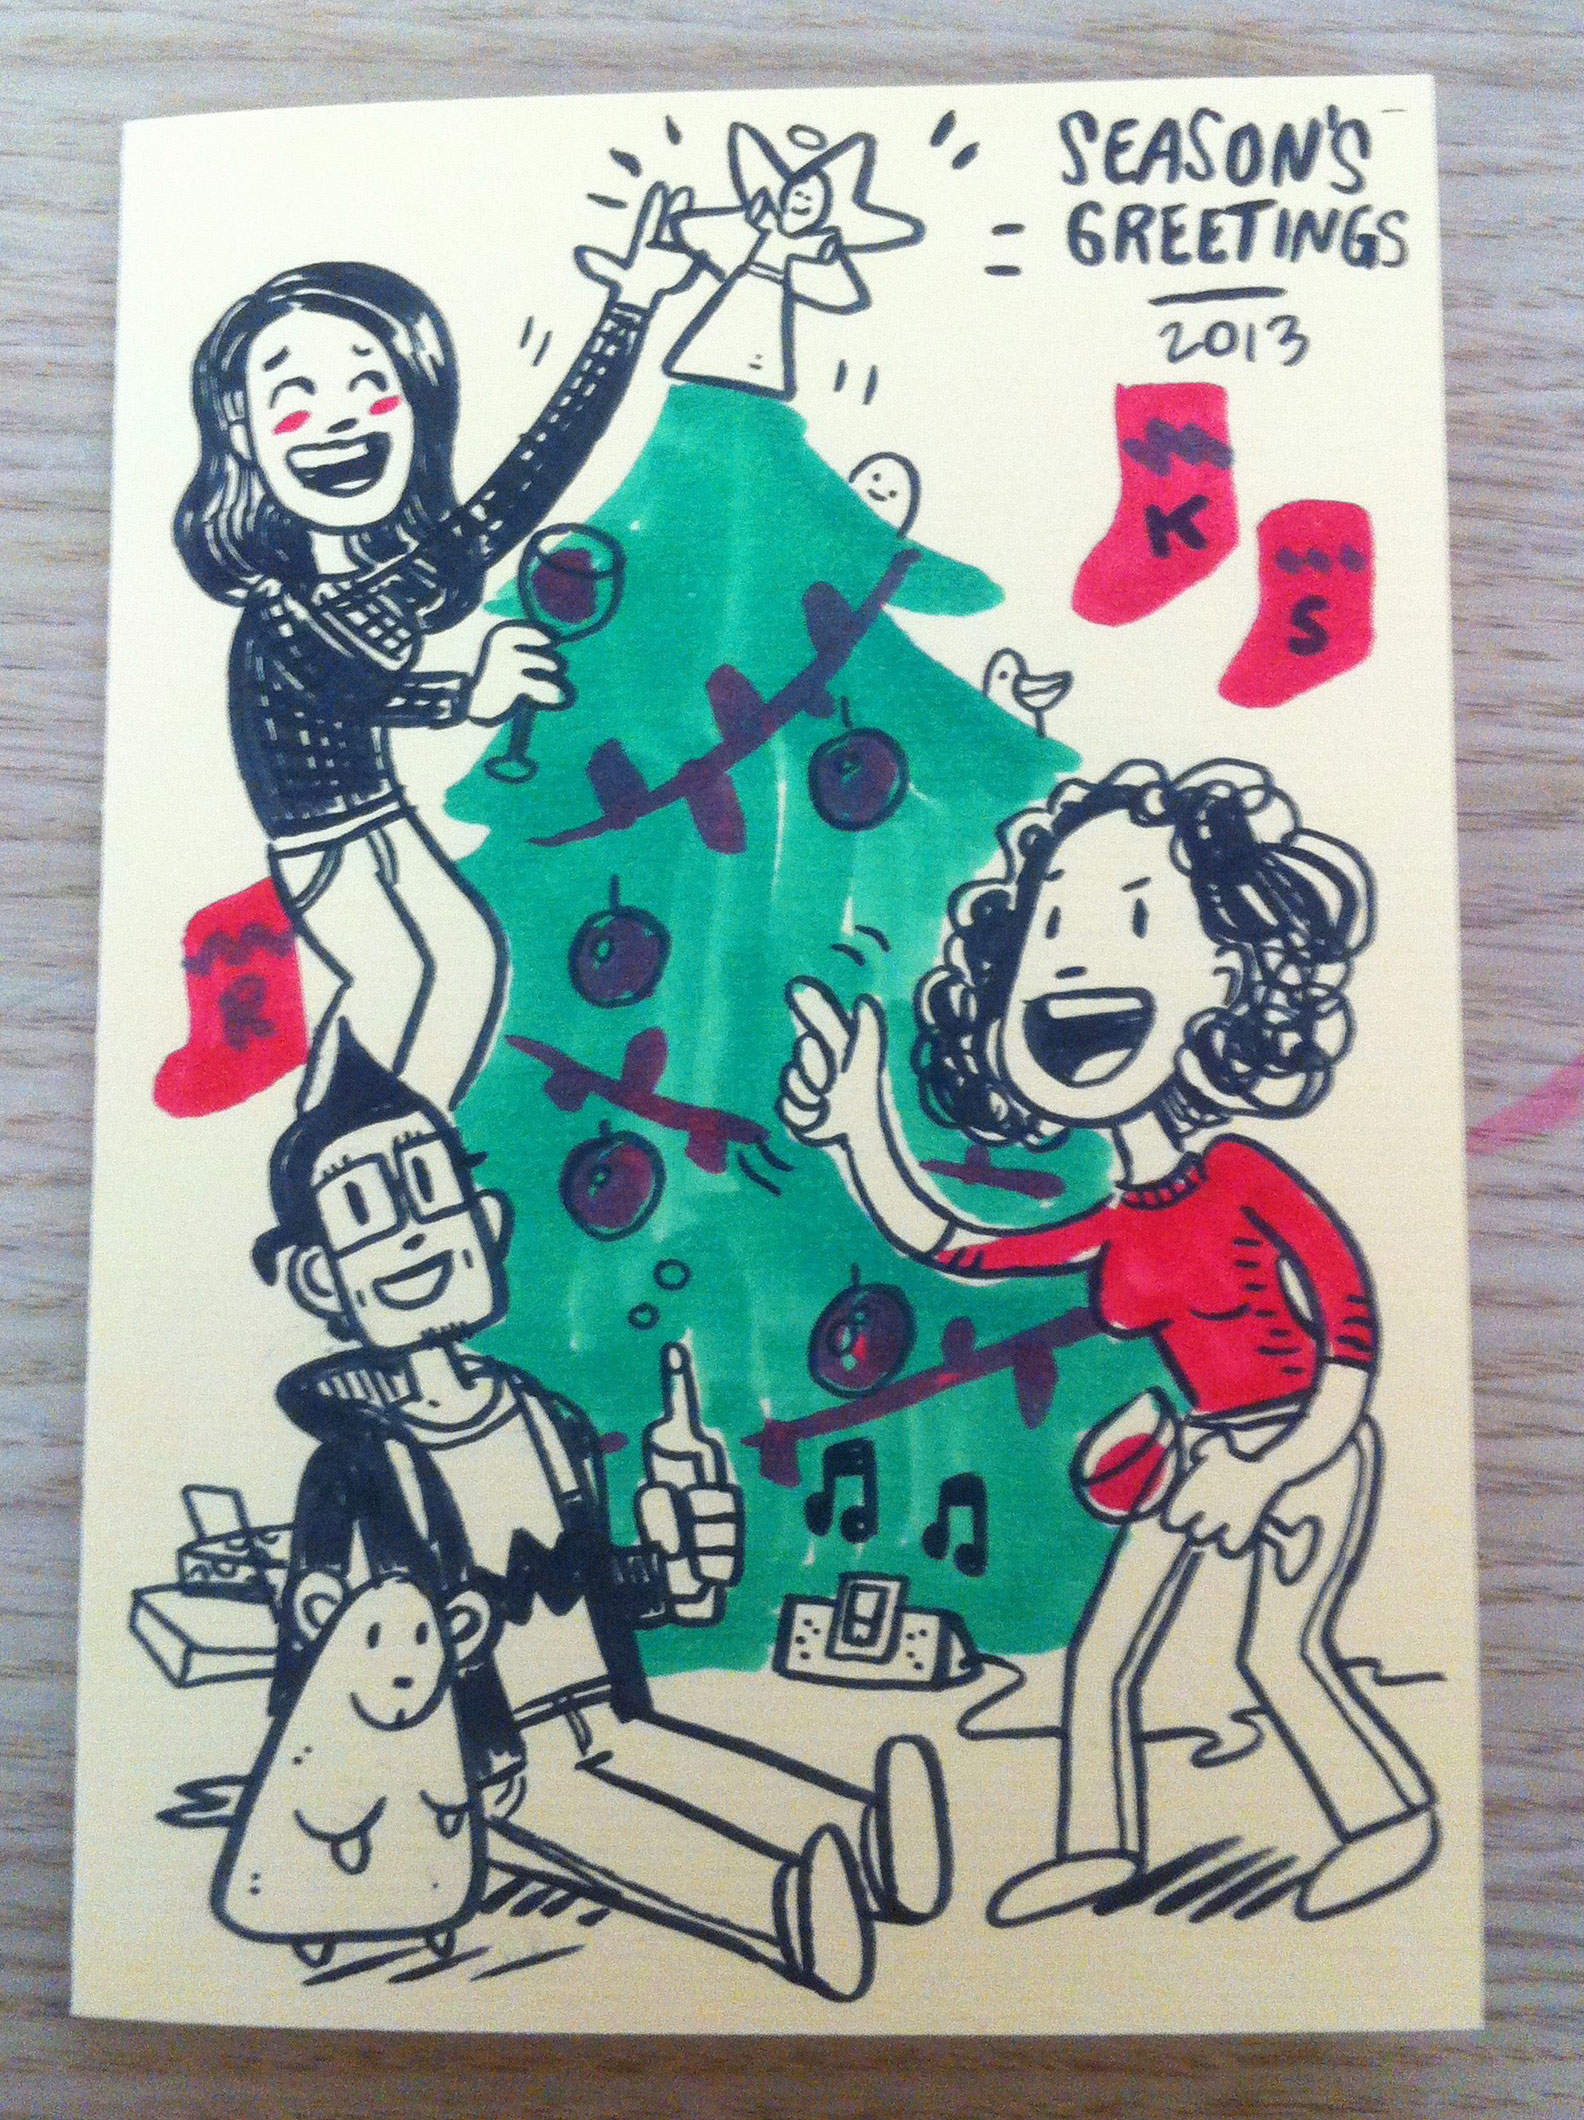 SEASON'S
GREETINGS
2013
K
S
R